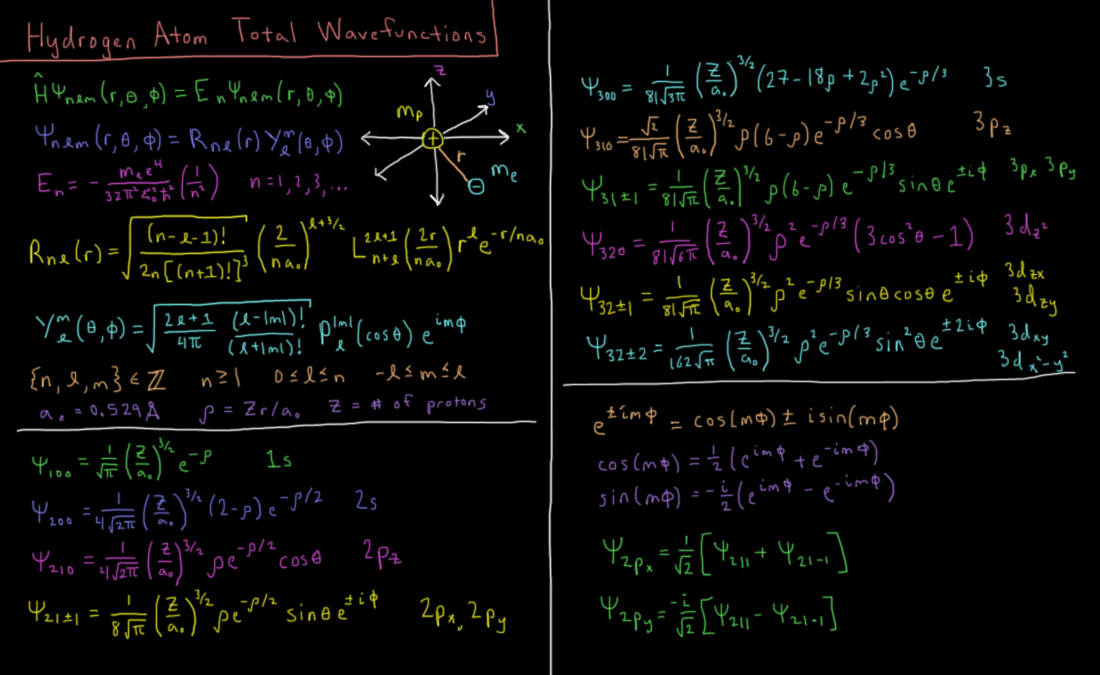 Hydrogen Atom Total Wavefunctions
ĤΨₙₗₘ(r,θ,ϕ) = EₙΨₙₗₘ(r,θ,ϕ)
Ψₙₗₘ(r,θ,ϕ) = Rₙₗ(r) Yₗᵐ(θ,ϕ)
Eₙ = - mₑe⁴/(32π²ε₀²ħ²) (1/n²) n=1,2,3,...
z
y
x
mₚ
+
r
mₑ
-
Rₙₗ(r) = √((n-ℓ-1)!/(2n[(n+1)!]³)) (2/(na₀))^(ℓ+3/2) L_(n+ℓ)^(2ℓ+1) (2r/(na₀)) r^ℓ e^(-r/na₀)
Yₗᵐ(θ,ϕ) = √((2ℓ+1)/(4π) (ℓ-|m|)!/(ℓ+|m|)!) Pₗ^|m|(cosθ) e^(imϕ)
{n,ℓ,m} ∈ ℤ n≥1 0≤ℓ≤n -ℓ≤m≤ℓ
a₀ = 0.529Å ρ = Zr/a₀ Z = # of protons
Ψ₁₀₀ = 1/√π (Z/a₀)^(3/2) e^(-ρ) 1s
Ψ₂₀₀ = 1/(4√(2π)) (Z/a₀)^(3/2) (2-ρ) e^(-ρ/2) 2s
Ψ₂₁₀ = 1/(4√(2π)) (Z/a₀)^(3/2) ρe^(-ρ/2) cosθ 2p_z
Ψ₂₁±₁ = 1/(8√π) (Z/a₀)^(3/2) ρe^(-ρ/2) sinθ e^(±iϕ) 2pₓ, 2p_y
Ψ₃₀₀ = 1/(81√(3π)) (Z/a₀)^(3/2) (27-18ρ+2ρ²) e^(-ρ/3) 3s
Ψ₃₁₀ = √2/(81√π) (Z/a₀)^(3/2) ρ(6-ρ) e^(-ρ/3) cosθ 3p_z
Ψ₃₁±₁ = 1/(81√π) (Z/a₀)^(3/2) ρ(6-ρ) e^(-ρ/3) sinθ e^(±iϕ) 3pₓ 3p_y
Ψ₃₂₀ = 1/(81√(6π)) (Z/a₀)^(3/2) ρ² e^(-ρ/3) (3cos²θ-1) 3d_z²
Ψ₃₂±₁ = 1/(81√π) (Z/a₀)^(3/2) ρ² e^(-ρ/3) sinθcosθ e^(±iϕ) 3d_zx
3d_zy
Ψ₃₂±₂ = 1/(162√π) (Z/a₀)^(3/2) ρ²e^(-ρ/3) sin²θ e^(±2iϕ) 3d_xy
3d_x²-y²
e^(±imϕ) = cos(mϕ) ± isin(mϕ)
cos(mϕ) = 1/2 (e^(imϕ) + e^(-imϕ))
sin(mϕ) = -i/2 (e^(imϕ) - e^(-imϕ))
Ψ_2pₓ = 1/√2 [Ψ₂₁₁ + Ψ₂₁₋₁]
Ψ_2p_y = -i/√2 [Ψ₂₁₁ - Ψ₂₁₋₁]